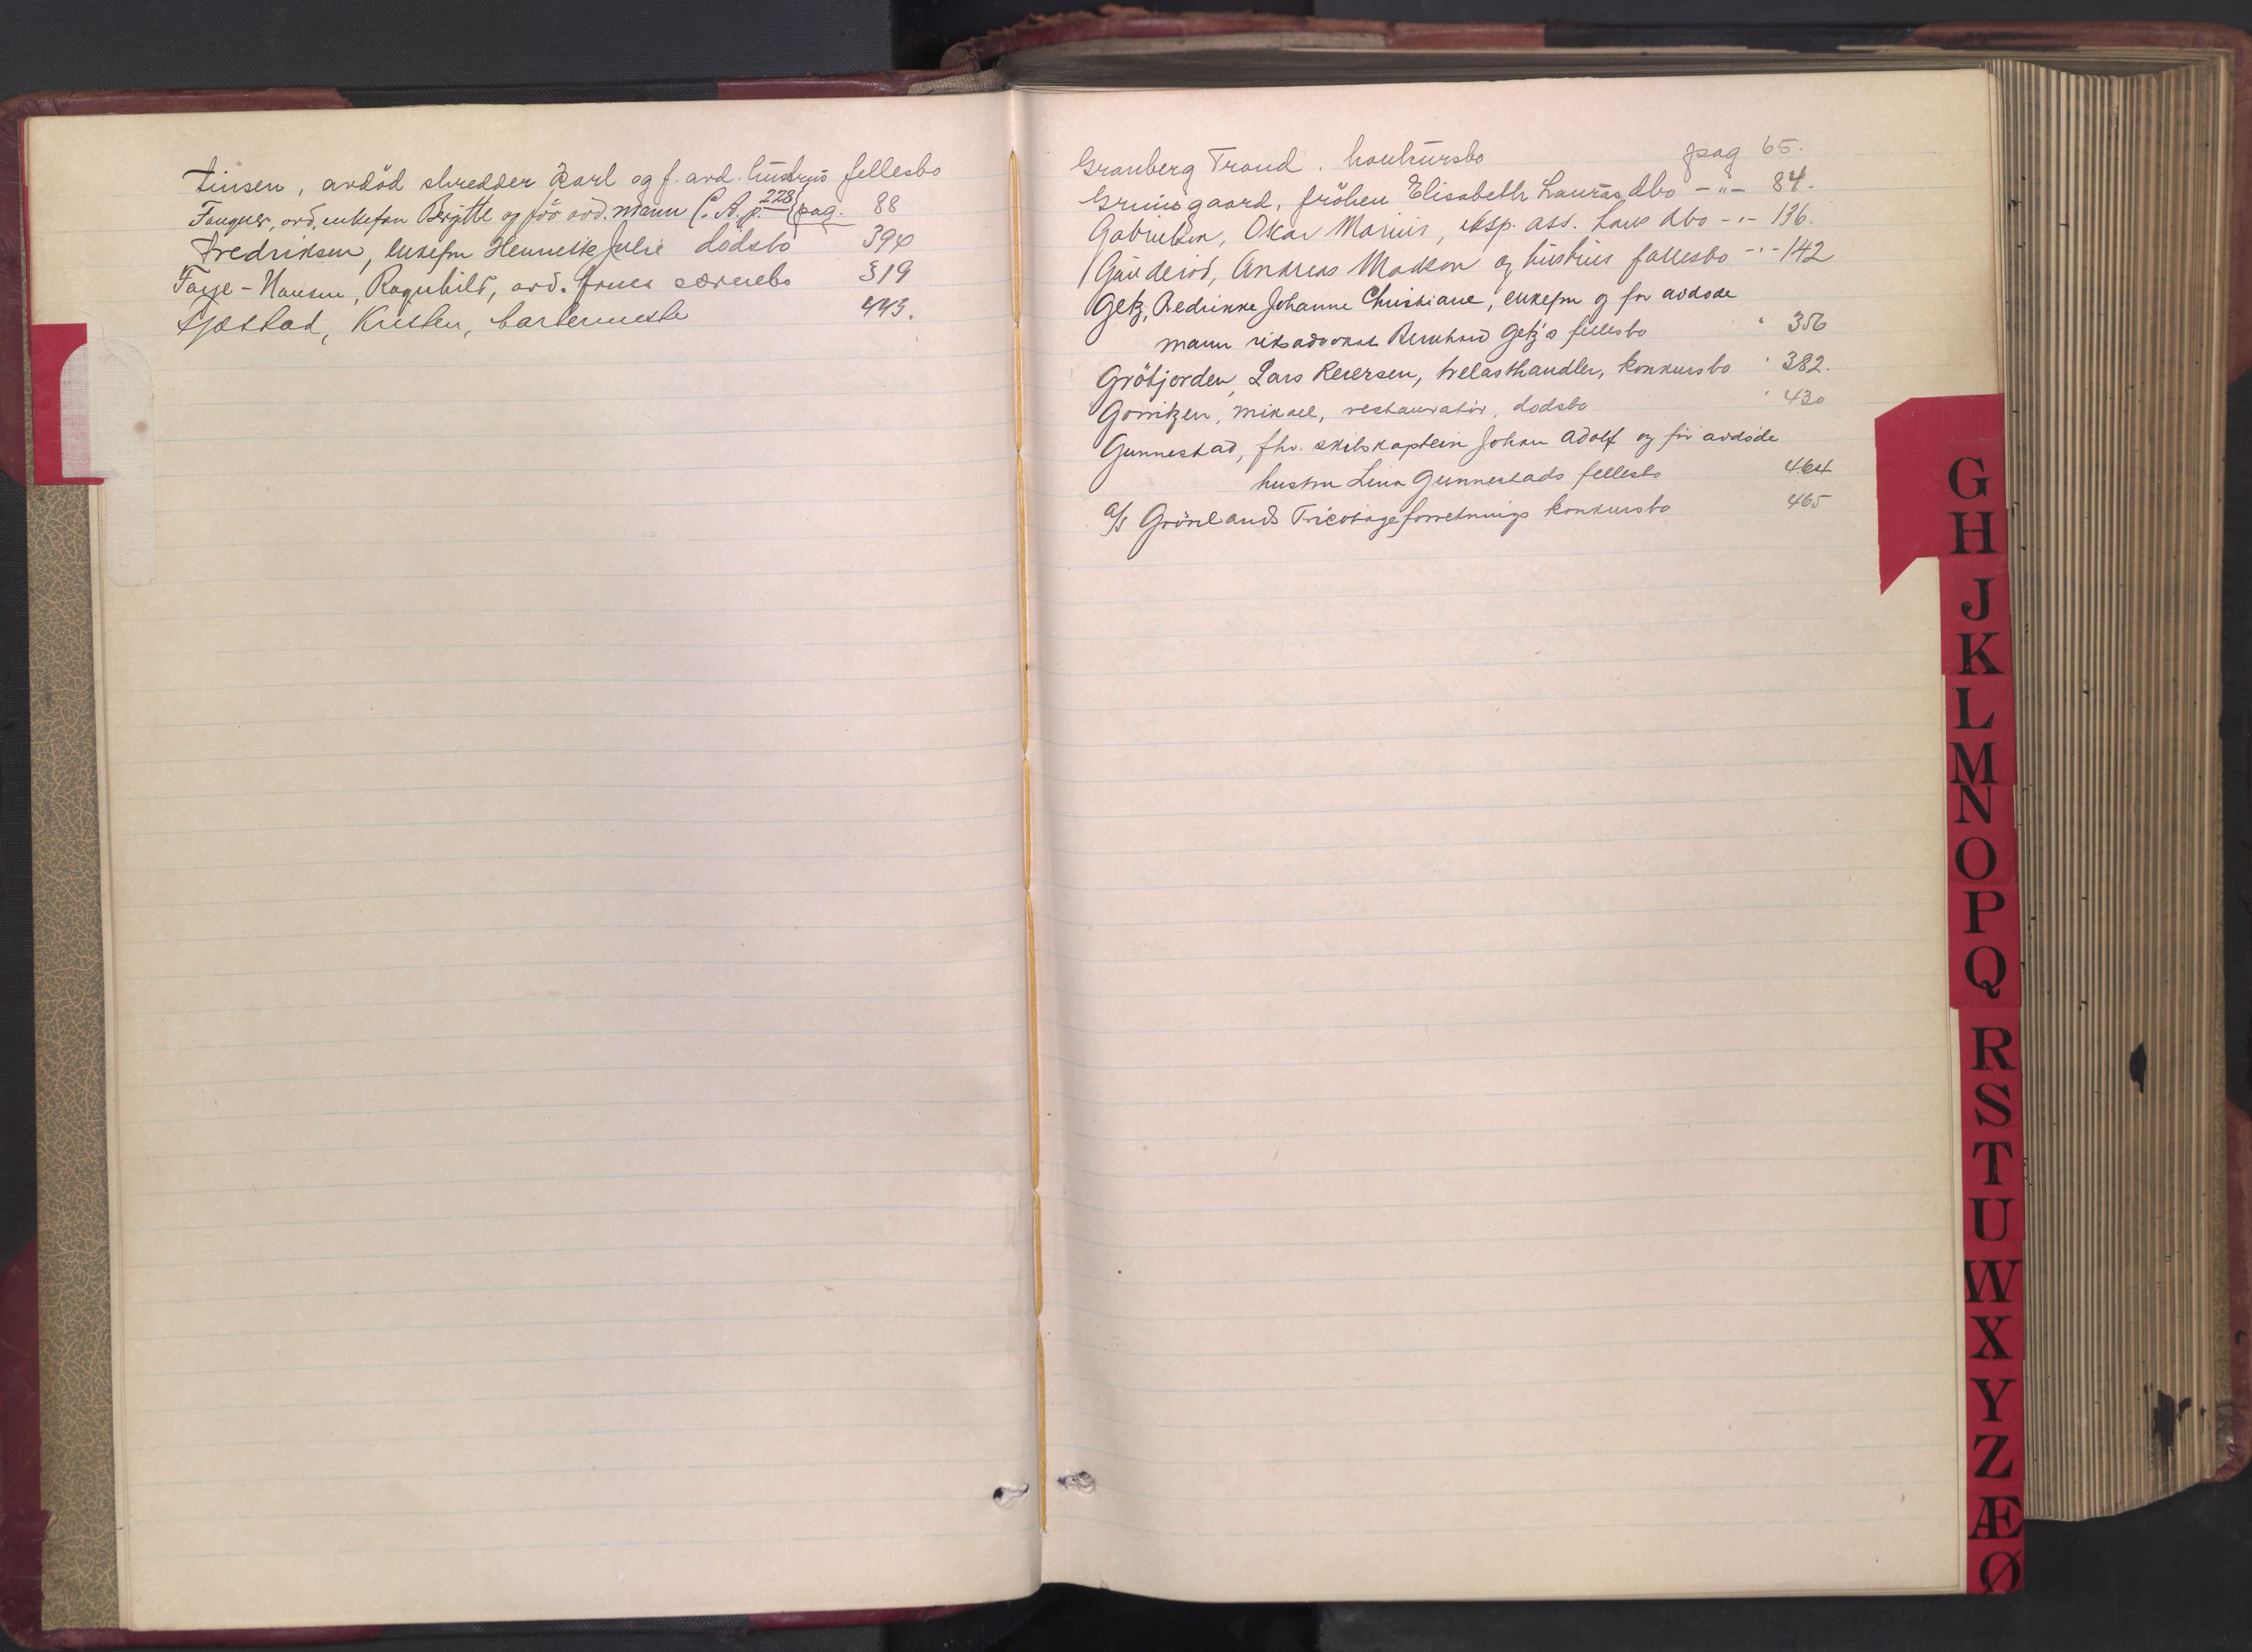 Finsen, avdöd skredder Karl og f. avd. hustrus fellesbo
Fougner, avd. enkefru Bergitte og för avd. mann (C. A. p. 228) pag. 88
Fredriksen, enkefru Henrikke Julie dødsbo 394
Faye-Hansen, Ragnhild, avd. frues særuebo 519
Fjæstad, Kristen, barbermester 443.
Granberg Trond. konkursbo pag 65.
Gruusgaard, fröken Elisabeth Lauras dbo -"- 84.
Gabrielsen, Oskar Marius, eksp. ass. Laus dbo -"- 136.
Gauderöd, Andreas Madsen og hustrus fællesbo -"- 142
Getz, Fredrikke Johanne Christiane, enkefru og for avdøde
mann riksadvokat Bernhard Getz's fellesbo " 356
Grötjorden, Lars Reiersen, trelasthandler, konkursbo " 382.
Gorritzen, Mikael, restauratör, dødsbo " 430
Gunnestad, fhv. skibskaptein Johan Adolf og för avdøde
hustru Lina Gunnestads fellesbo 464
A/S Grönlands Tricotageforretnings konkursbo 465
G
H
J
K
L
M
N
O
P
Q
R
S
T
U
W
X
Y
Z
Æ
Ø